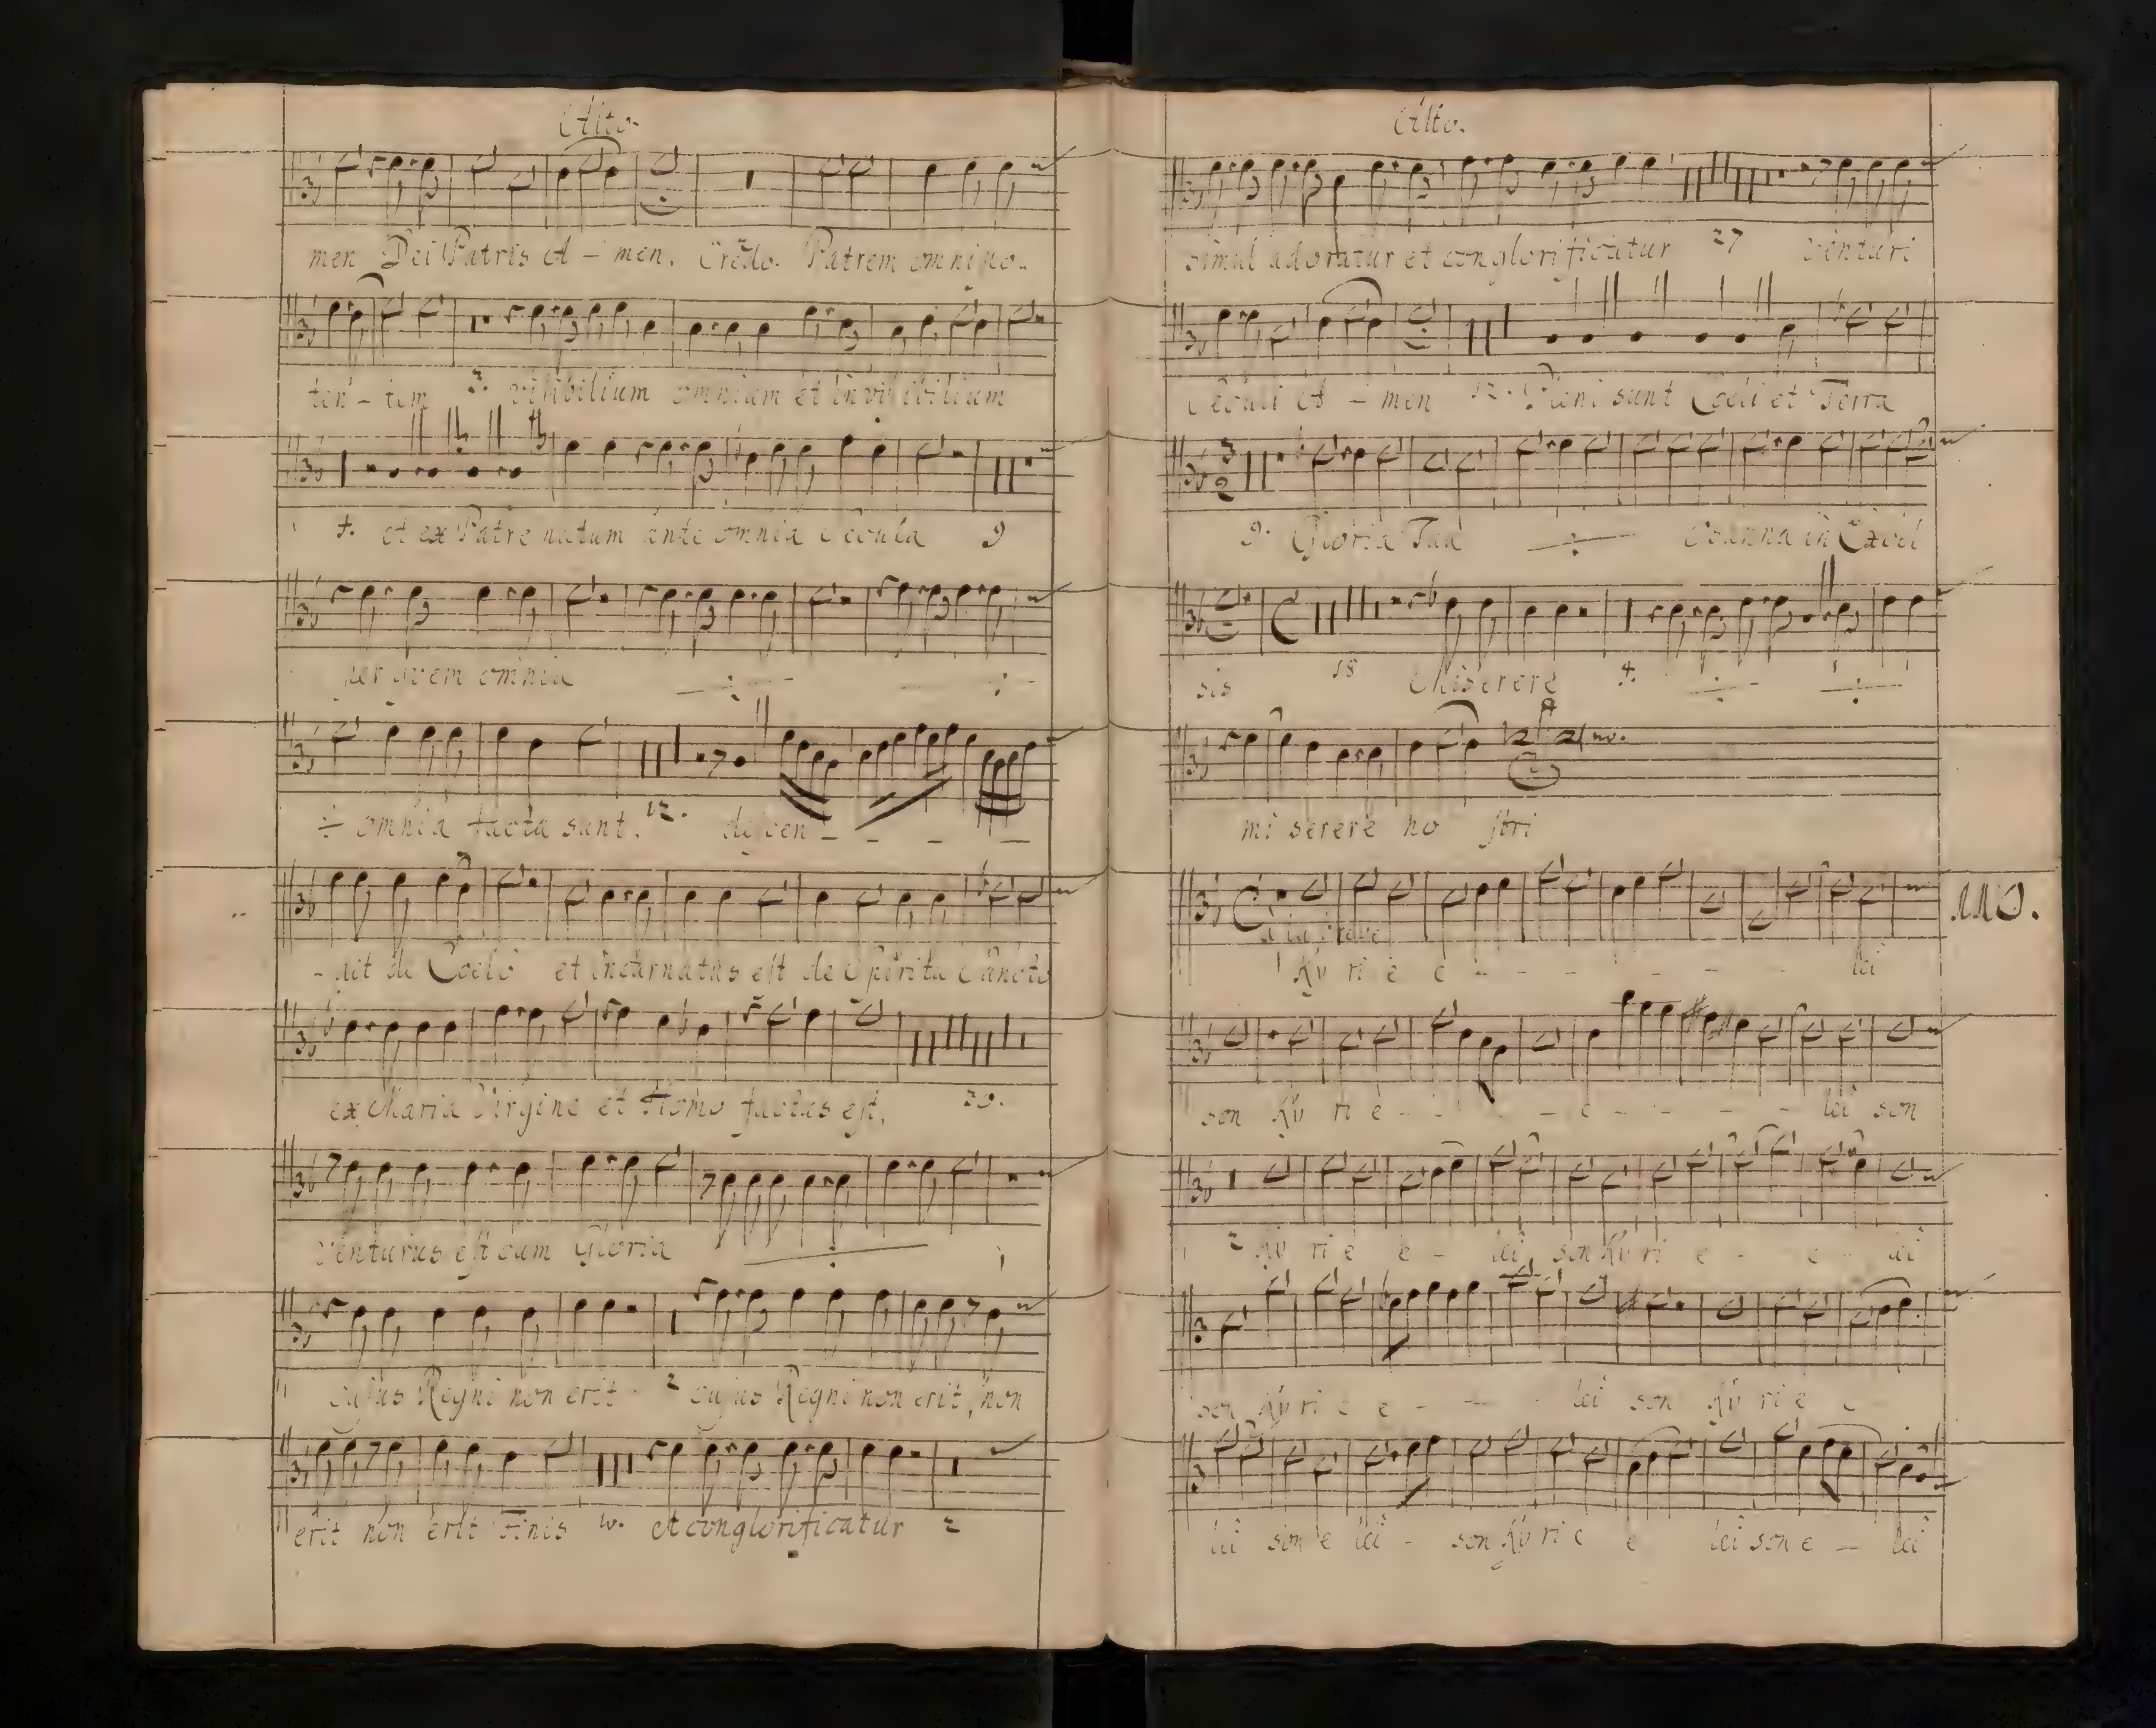 Alto.
men Dei Patris A - men. Credo. Patrem omnipo-
ten - tem 3. visibilium omnium et invisibilium
7. et ex Patre natum ante omnia Secula 9
per quem omnia
omnia facta sunt. 12. descen - - - -
- dit de Coelo et incarnatus est de Spiritu Sancto
ex Maria Virgine et Homo factus est.
Venturus est cum Gloria
cujus Regni non erit 2 cujus Regni non erit, non
erit non erit Finis 10. et conglorificatur 2
Alto.
simul adoratur et conglorificatur 27 Venturi
Seculi A - men 12. Pleni sunt Coeli et Terra
3 2
9. Gloria Tua Osanna in Excel
sis 18 Miserere 4.
mi serere no stri
110.
a la breve
Ky ri e e - - - - - - - lei
son Ky ri e - - - e - - - - lei son
2 Ky ri e e - lei son Ky ri e - e - lei
son Ky ri e e - - - lei son Ky ri e e
lei son e lei - son Ky ri e e lei son e - lei